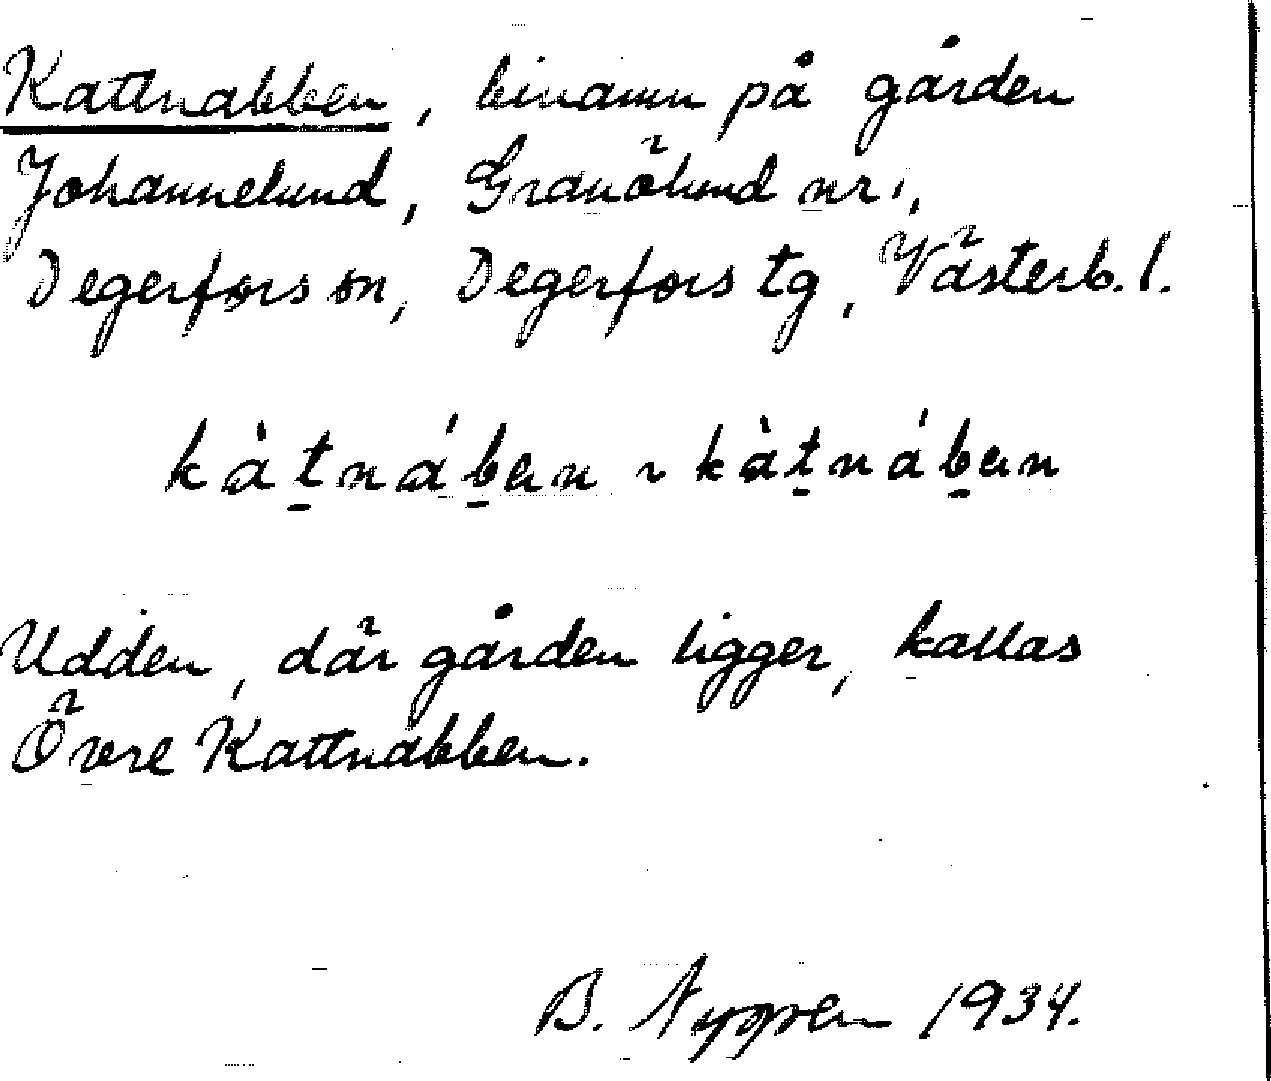 Kattnabben, binamn på gården
Johannelund, Granölund nr 1,
Degerfors sn, Degerfors tg, Västerb. l.
kàt̠náb̠en ~ kàt̠náb̠en
Udden, där gården ligger, kallas
Övre Kattnabben.
B. Nygren 1934.